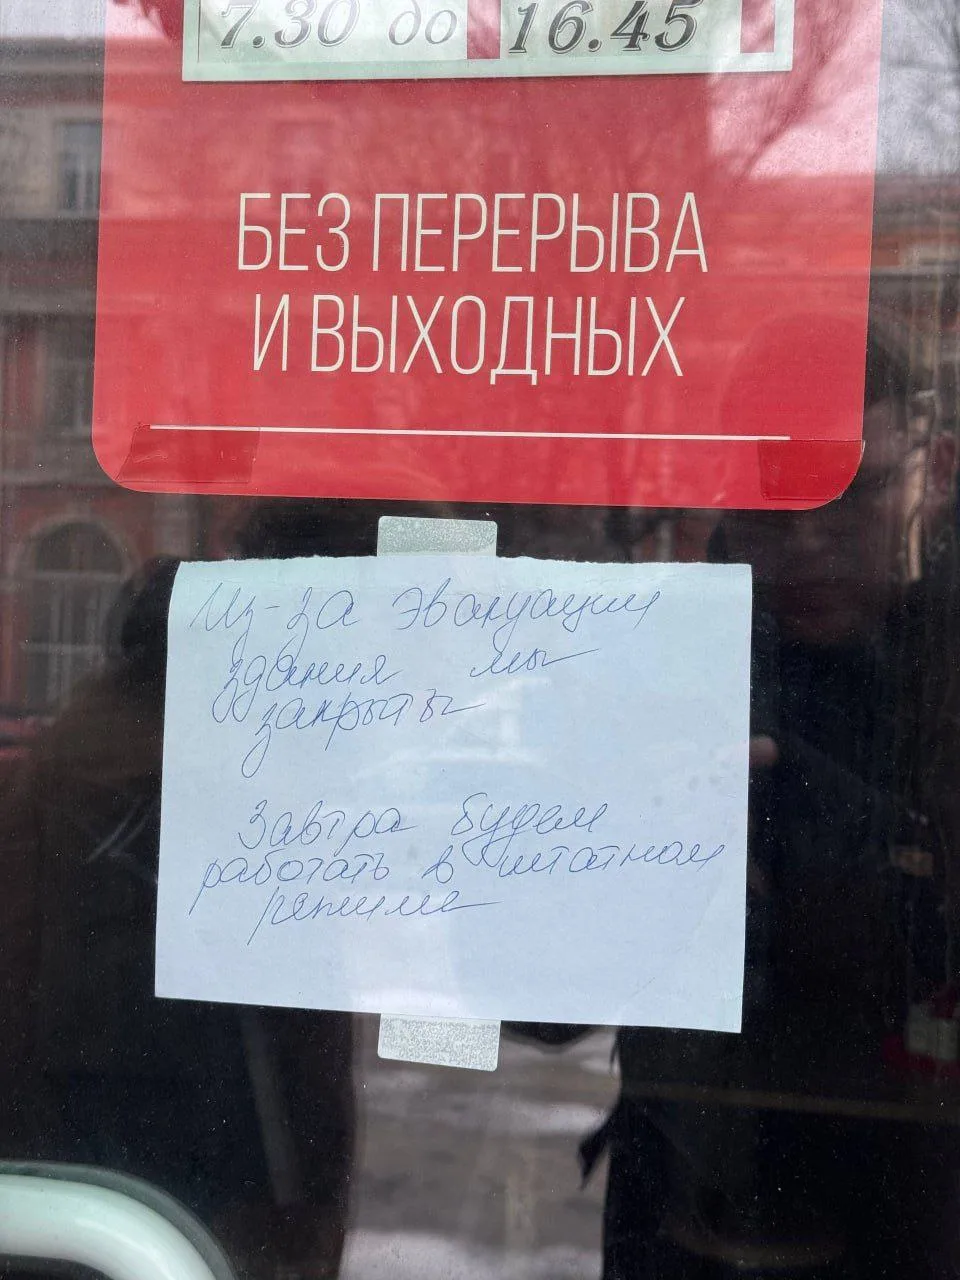 7.30 до 16.45
БЕЗ ПЕРЕРЫВА
И ВЫХОДНЫХ
Из-за эвакуации
здания мы
закрыты
Завтра будем
работать в штатном
режиме